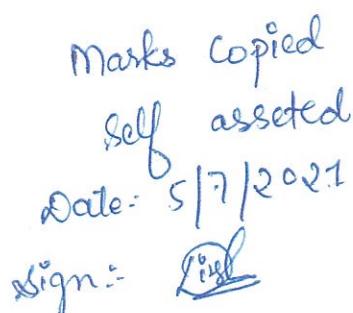 Marks Copied
Self asseted
Date:- 5/7/2021
Sign:-